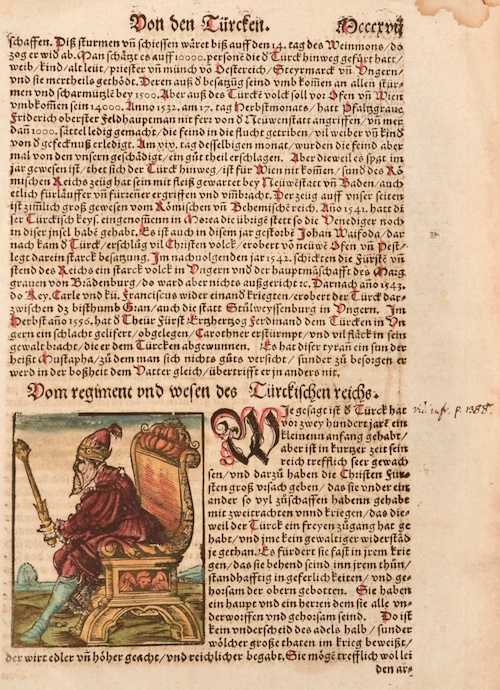 Von den Türcken. Mccccxvij
schaffen. Diß sturmen vn̄ schiessen wäret biß auff den 14. tag des Weinmons/ do
zog er wid ab. Man schätzt es auff 10000. persone die ď Türck hinweg gefürt hatt/
weib/ kind/ alt leüt/ priester vn̄ münch vō Oesterich/ Steyrmarck vn̄ Vngern/
vnd sie mertheils gethödt. Deren auß ď besatzūg seind vmb komē an allen stür-
men vnd scharmützlē bey 1500. Aber auß des Türckē volck sol vor Ofen vn̄ Wien
vmbkomē sein 14000. Anno 1532. am 17. tag Herbstmonats/ hatt Pfaltzgraue
Friderich oberster Feldhauptman nit fer von ď Neuwenstatt angriffen/ vn̄ mer
dan̄ 1000. sättel ledig gemacht/ die feind in die flucht getriben/ vil weiber vn̄ kind
von ď gefecknuß erledigt. Am xiv. tag desselbigen monat/ wurden die feind aber
mal von den vnsern geschädigt/ ein gůt theil erschlagen. Aber dieweil es spat im
jar gewesen ist/ thet sich der Türck hinweg/ ist für Wien nit komē/ sund des Rö
mischen Reichs zeüg hat sein mit fleiß gewartet bey Neüwestatt vn̄ Baden/ auch
etlich fürlauffer vn̄ fürrener ergriffen vnd vm̄bracht. Der zeüg auff vnser seiten
ist zimlich groß gewesen vom Römischen vn̄ Bohemischē reich. Anō 1541. hatt di
ser Türckisch keys. eingenom̄en in Morea die übrige stett so die Venediger noch
in diser jnsel habē gehabt. Es ist auch in disem jar gestorbē Johan Waifoda/ dar
nach kam ď Türck/ erschlůg vil Christen volck/ erobert vō neuwē Ofen vn̄ Pest/
legt darein starck besatzung. Im nachuolgenden jar 1542. schickten die Fürstē vn̄
stend des Reichs ein starck volck in Vngern vnd der hauptmāschafft des Marg
grauen von Brādenburg/ do ward aber nichts außgericht ɾc. Darnach anō 1543.
do Key. Carle vnd kü. Franciscus wider einand kriegten/ erobert der Türck dar-
zwischen dz bisthumb Gran/ auch die statt Stůlweyssenburg in Vngern. Im
Herbst anō 1556. hat ď Theür Fürst Ertzhertzog Ferdinand dem Türcken in Vn
gern ein schlacht gelifert/ obgelegen/ Carothner erstürmpt/ vnd vil fläck in sein
gewalt bracht/ die er dem Türcken abgewunnen. Es hat diser tyran ein sun der
heißt Mustapha/ zů dem man sich nichts gůts versicht/ sunder zů besorgen er
werd in der boßheit dem Vatter gleich/ übertrifft er jn anders nit.
Vom regiment vnd wesen des Türckischen reichs.
WJe gesagt ist ď Türck hat
vor zwey hundert jarē ein
kleinenn anfang gehabt/
aber ist in kurtzer zeit sein
reich trefflich seer gewach
sen/ vnd darzů haben die Christen Für-
sten groß vrsach geben/ das sie vnder ein
ander so vyl zůschaffen habenn gehabt
mit zweitrachten vnnd kriegen/ das die-
weil der Türck ein freyen zůgang hat ge
habt/ vnd jme kein gewaltiger widerstād
je gethan. Es fürdert sie fast in jrem krie
gen/ das sie behend seind inn jrem thůn/
standhafftig in geferlichkeiten/ vnd ge-
horsam der obern gebotten. Sie haben
ein haupt vnd ein herren dem sie alle vn-
derworffen vnd gehorsam seind. Do ist
kein vnderscheid des adels halb/ sunder
wölcher große thaten im krieg beweißt/
der wirt edler vn̄ höher geacht/ vnd reichlicher begabt. Sie mögē trefflich wol lei
den ar-
vid. infr. p. 1388.